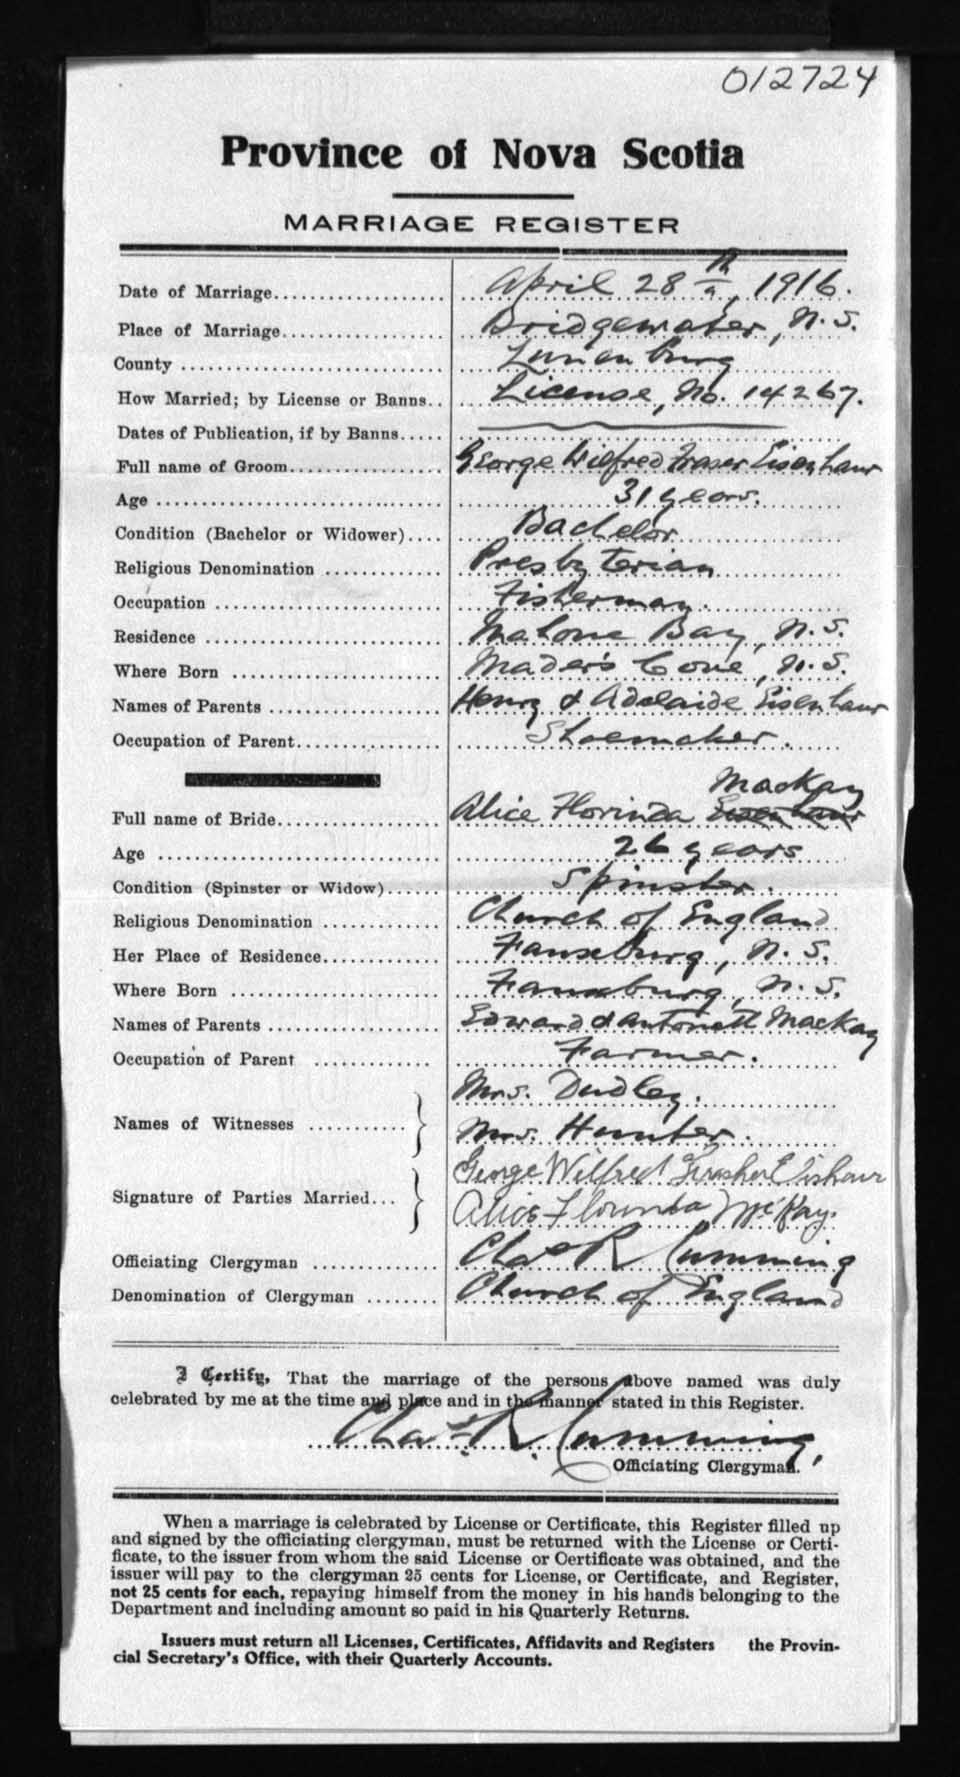 012724
Province of Nova Scotia
MARRIAGE REGISTER
Date of Marriage.................... April 28th, 1916.
Place of Marriage................... Bridgewater, N.S.
County .............................. Lunenburg
How Married; by License or Banns.. License, No. 14267.
Dates of Publication, if by Banns.....
Full name of Groom.................. George Wilfred Fraser Eisenhaur
Age ................................. 31 years.
Condition (Bachelor or Widower).... Bachelor
Religious Denomination ............. Presbyterian
Occupation .......................... Fisherman.
Residence ........................... Mahone Bay, N.S.
Where Born .......................... Mader's Cove, N.S.
Names of Parents .................... Henry & Adelaide Eisenhaur
Occupation of Parent................. Shoemaker.
Mackay
Full name of Bride................... Alice Florinda Eisenhaur
Age ................................. 26 years
Condition (Spinster or Widow)...... Spinster.
Religious Denomination ............. Church of England
Her Place of Residence.............. Fauxburg, N.S.
Where Born .......................... Fauxburg, N.S.
Names of Parents .................... Edward & Antonett Mackay
Occupation of Parent ............... Farmer.
Mrs. Dudley.
Names of Witnesses ...........
Mrs. Hunter.
George Wilfred Frasher Eishaur
Signature of Parties Married...
Alice Florinda McKay.
Officiating Clergyman .............. Chas R Cumming
Denomination of Clergyman ........ Church of England
I Certify, That the marriage of the persons above named was duly
celebrated by me at the time and place and in the manner stated in this Register.
Chas. R. Cumming,
Officiating Clergyman.
When a marriage is celebrated by License or Certificate, this Register filled up
and signed by the officiating clergyman, must be returned with the License or Certi-
ficate, to the issuer from whom the said License or Certificate was obtained, and the
issuer will pay to the clergyman 25 cents for License, or Certificate, and Register,
not 25 cents for each, repaying himself from the money in his hands belonging to the
Department and including amount so paid in his Quarterly Returns.
Issuers must return all Licenses, Certificates, Affidavits and Registers the Provin-
cial Secretary's Office, with their Quarterly Accounts.